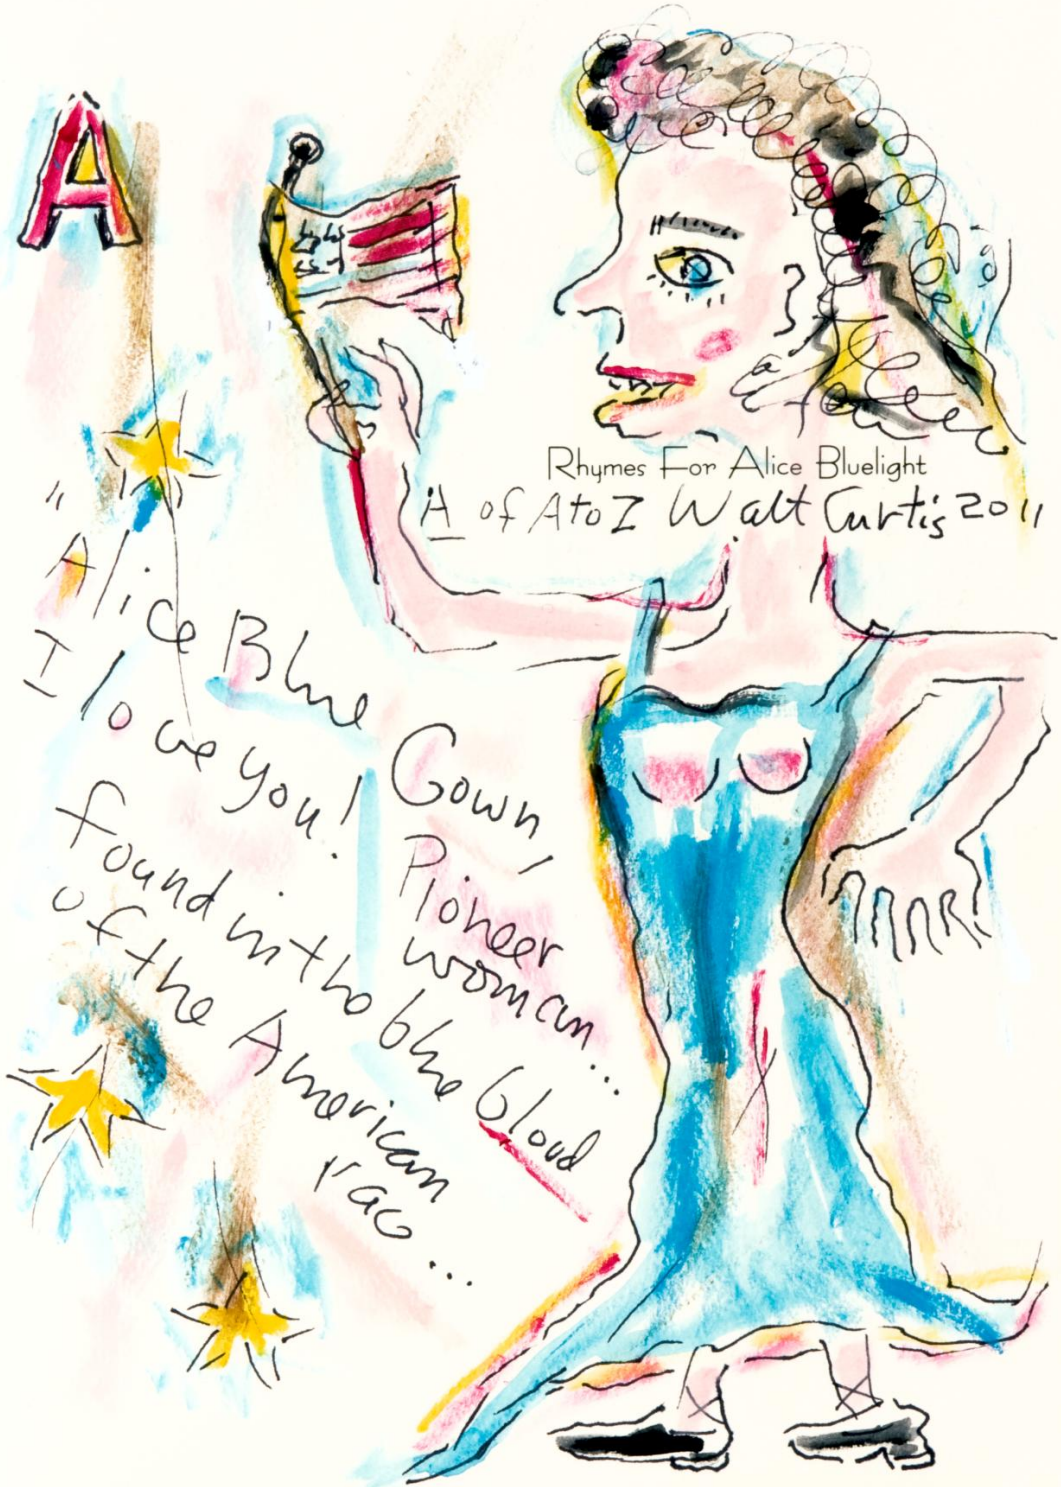 A
Rhymes For Alice Bluelight
A of A to Z Walt Curtis 2011
"Alice Blue Gown,
I love you! Pioneer
woman...
found in the blue blood
of the American
race...